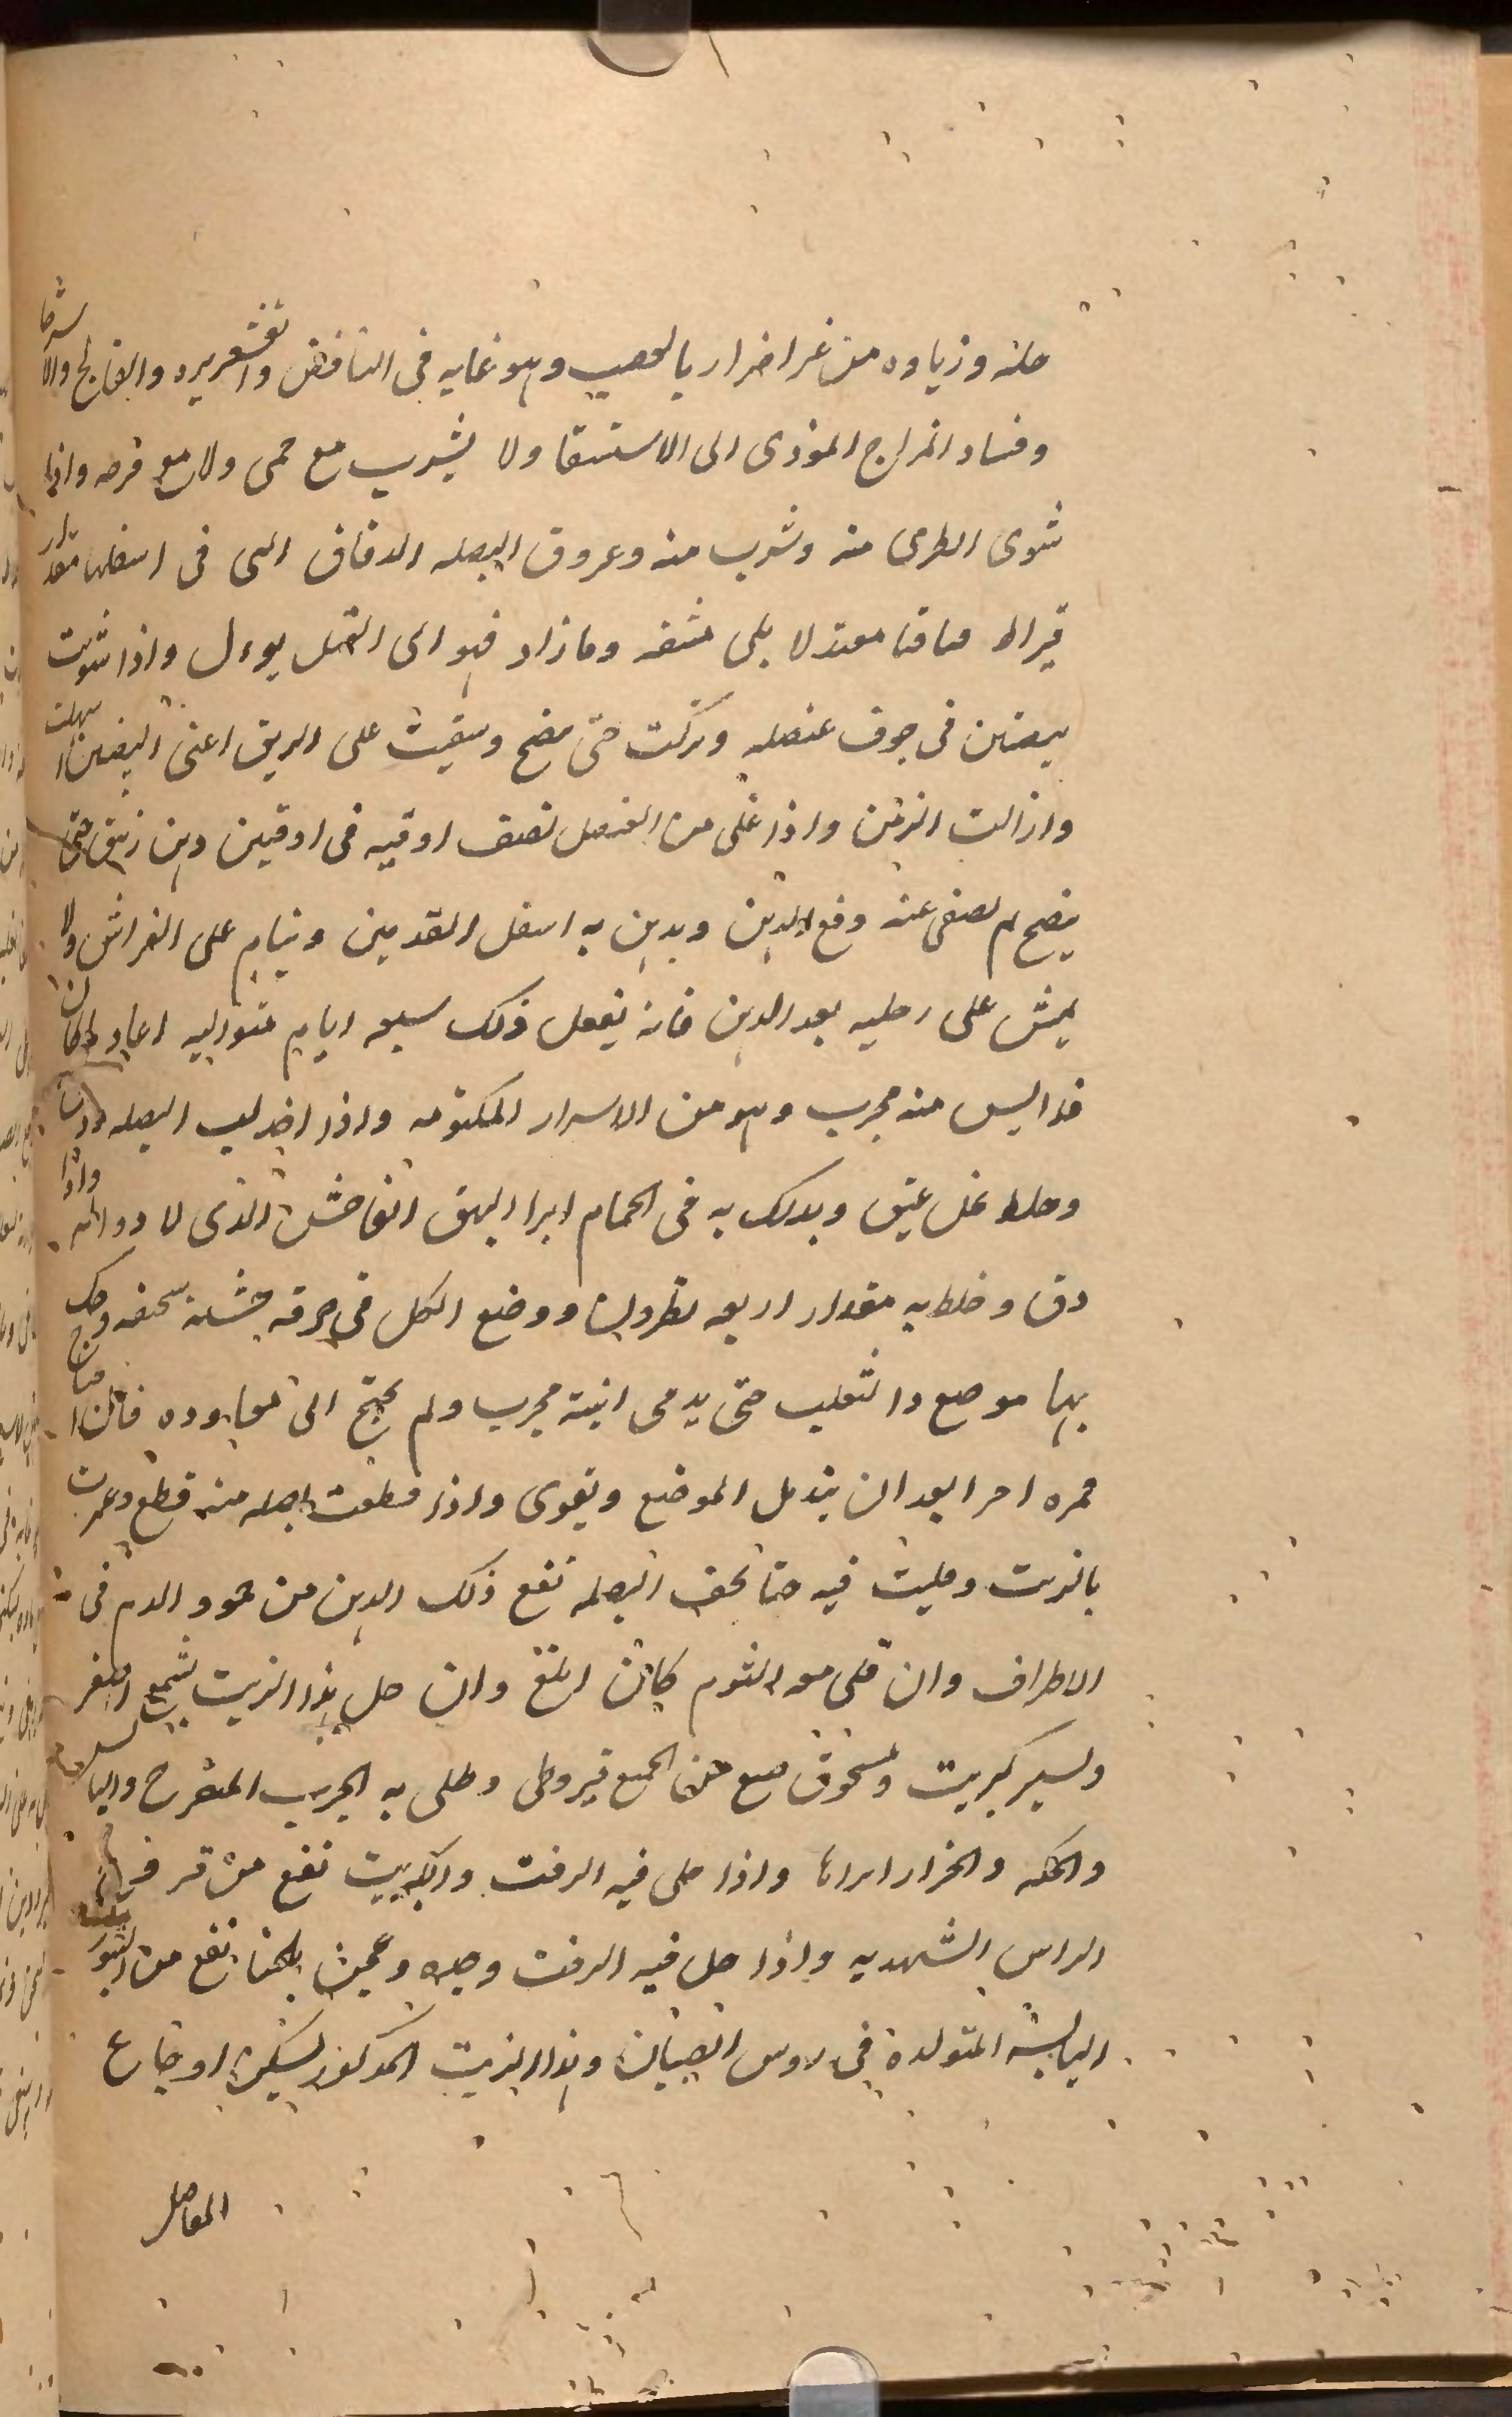 خله وزياده من غير اضرار بالعصب وهو غايه فى النافض والقشعريره والفالج والاسترخا
وفساد المزاج المؤدى الى الاستسقا ولا يشرب مع حمى ولا مع قرحه واذا
شوى الطرى منه وشرب منه وعروق البصله الدقاق التى فى اسفلها مقدار
قيراط قيا قيا معتدلا بلى مشقه وما زاد فهو الى القتل يوءل واذا شويت
بيضتين فى جوف عنصله وتركت حتى ينضج وسقيت على الريق اعنى البيضتين اسهلت
وازالت المزمن واذا غلى من العنصل نصف اوقيه فى اوقيتين دهن زنبق حتى
ينضج ثم يصفى عنه ورفع الدهن ويدهن به اسفل القدمين وينام على الفراش ولا
يمش على رجليه بعد الدهن فانه يفعل ذلك سبعه ايام متواليه اعاد وان كان
قد ايس منه مجرب وهو من الاسرار المكتومه واذا اخذ لب البصله ودق
وخلط بخل عتيق ويدلك به فى الحمام ابرا البهق الفاحش الذى لا دوا له واذا
دق وخلط به مقدار اربعه نطرون ووضع الكل فى خرقه خشنه سحقه وحك
بها موضع دا الثعلب حتى يدمى انبته مجرب ولم يحتج الى معاوده فان احتاج
مره اخرا بعد ان يندمل الموضع ويقوى واذا قطعت بصله منه قطع وغمرت
بالزيت وقليت فيه حتا تجف البصله نفع ذلك الدهن من جمود الدم فى
الاطراف وان قلى معه الثوم كان ابلغ وان حل بهذا الزيت شمع اصفر
ويسير كبريت ومسحوق مع الجميع قيروطى وطلى به الجرب المتقرح واليابس
والحكه والحزاز ابراها واذا حلى فيه الزفت والكبريت نفع من قروح
الراس الشهديه واذا حل فيه الزفت وحده وعجن بالحنا نفع من البثور
اليابسه المتولدة فى روس الصبيان وهذا الزيت المذكور يسكن اوجاع
المفاصل